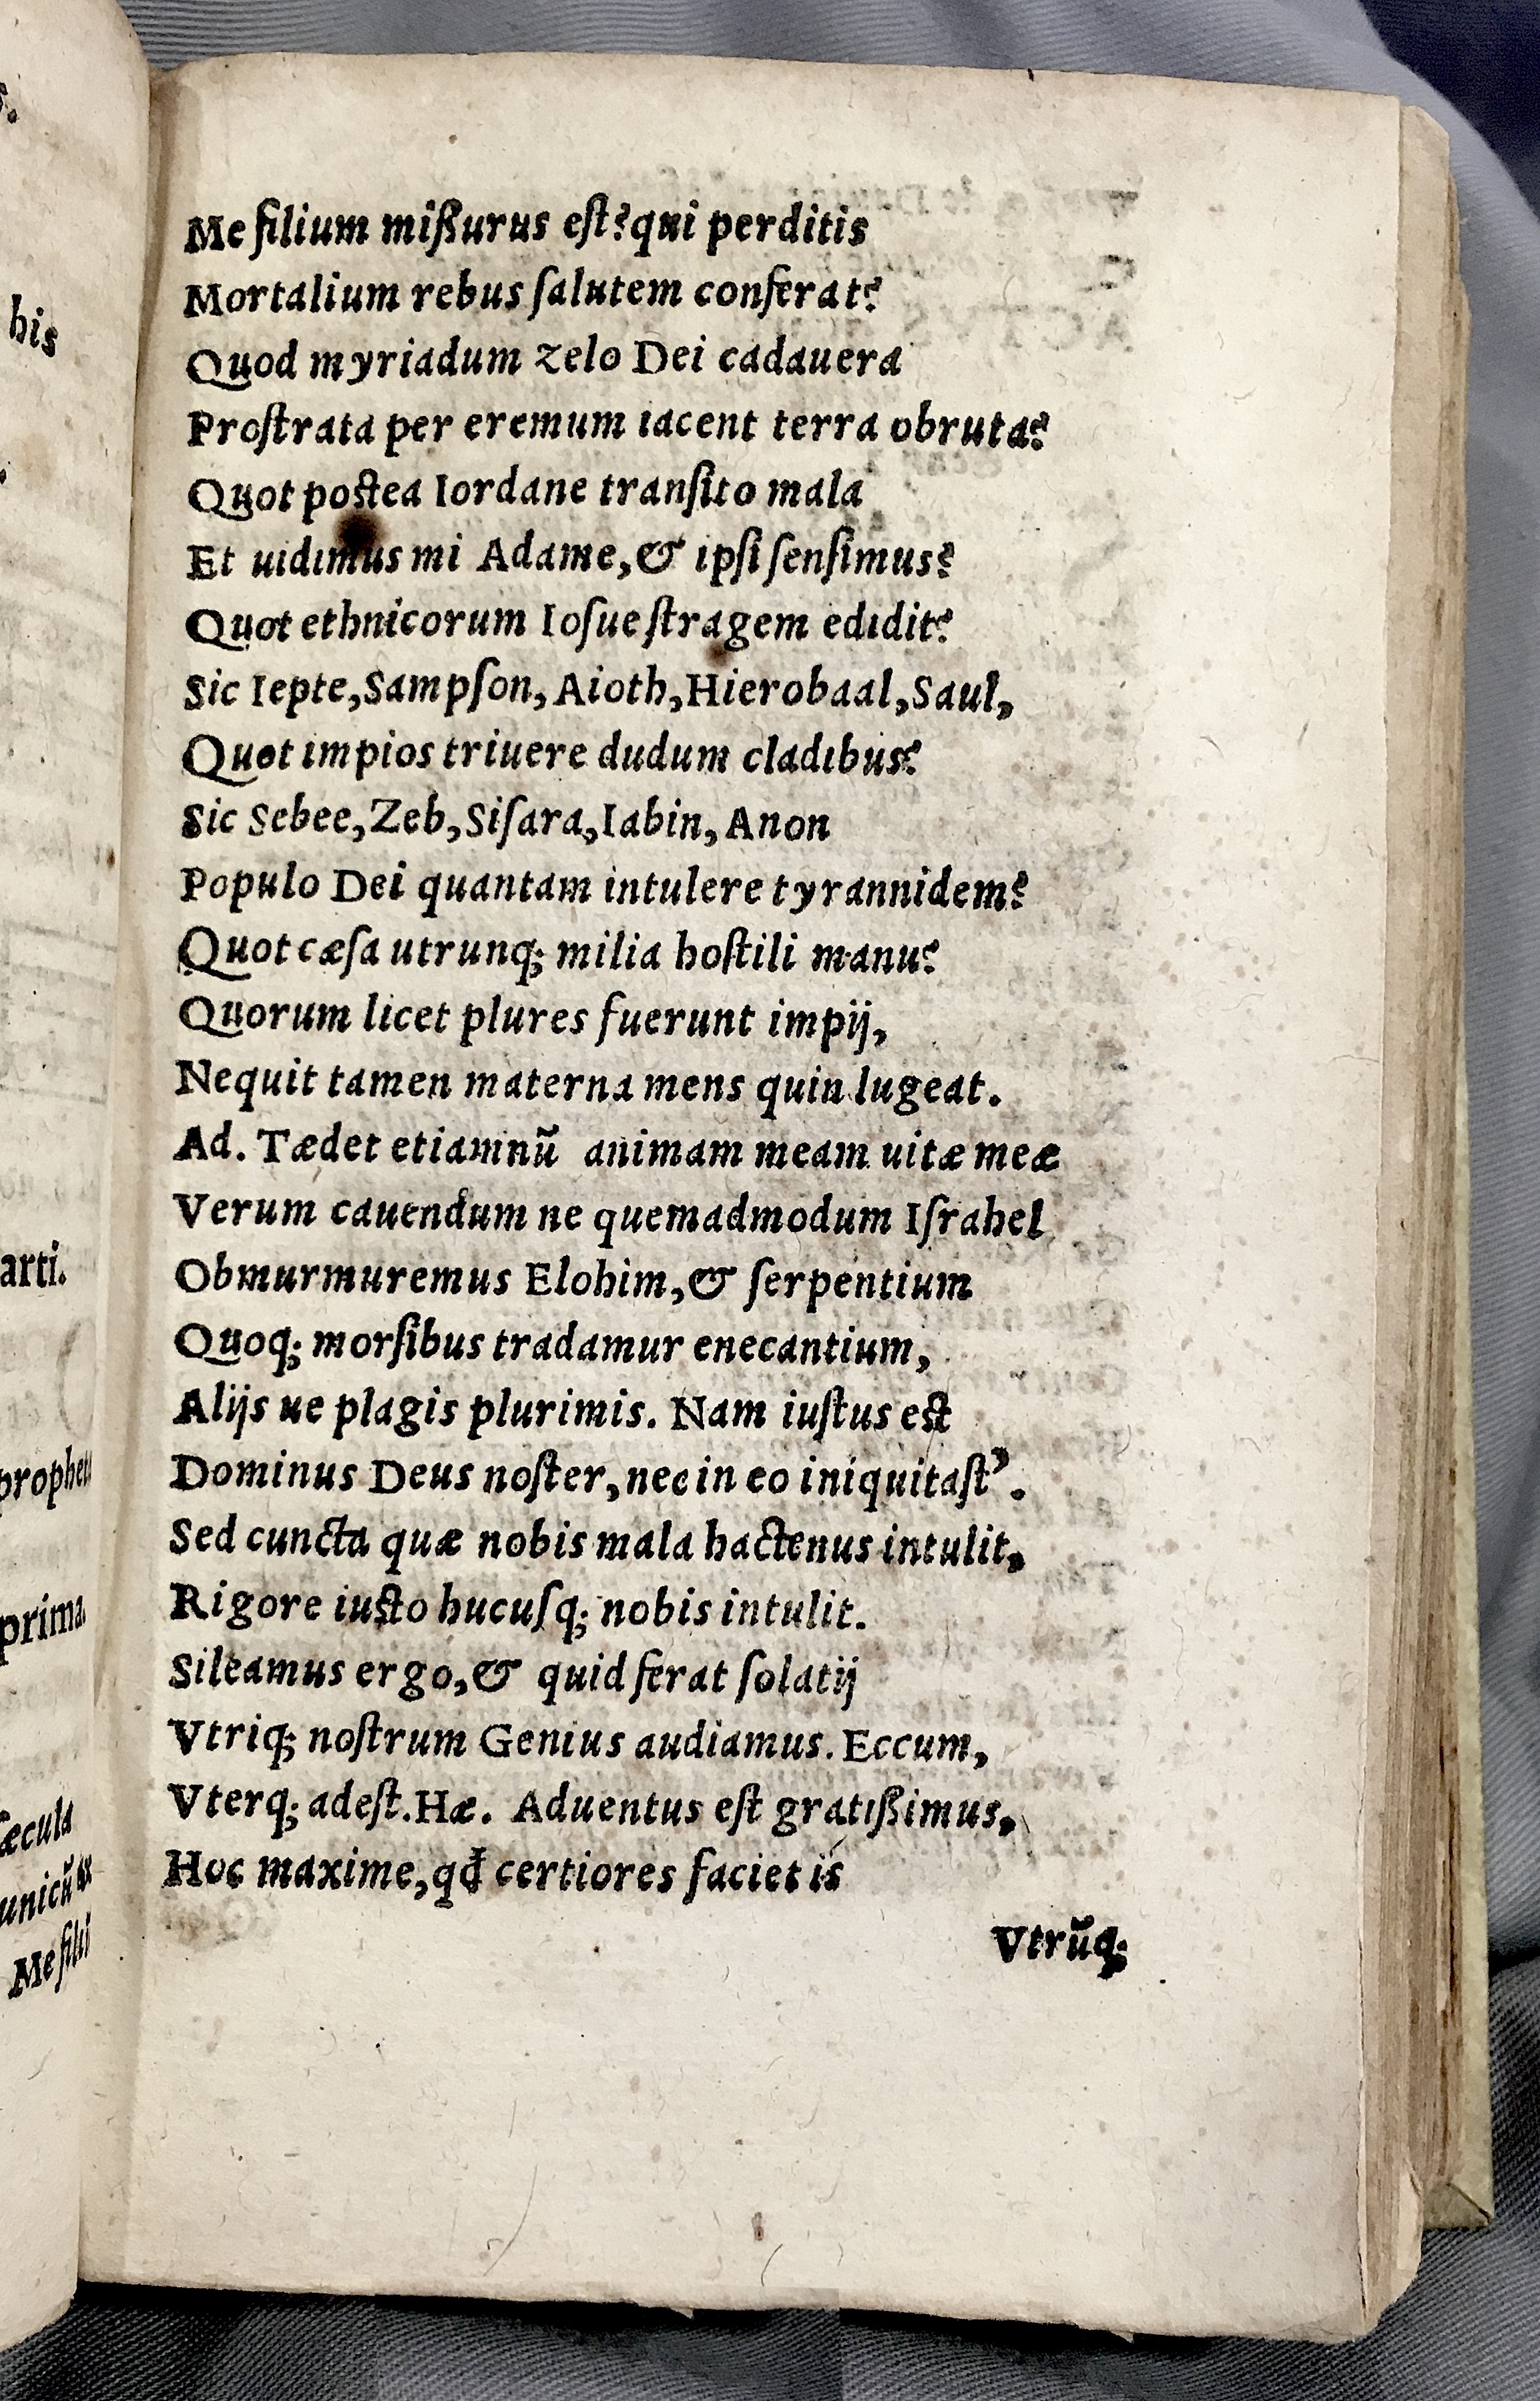 s.
his
arti.
prophet
prima
æcula
unicũ
Me fili
Me filium mißurus eſt? qui perditis
Mortalium rebus ſalutem conferat?
Quod myriadum zelo Dei cadauera
Proſtrata per eremum iacent terra obruta?
Quot poſtea Iordane tranſito mala
Et uidimus mi Adame, & ipſi ſenſimus?
Quot ethnicorum Ioſue ſtragem edidit?
Sic Iepte, Sampſon, Aioth, Hierobaal, Saul,
Quot impios triuere dudum cladibus?
Sic Sebee, Zeb, Siſara, Iabin, Anon
Populo Dei quantam intulere tyrannidem?
Quot cæſa utrunq; milia hoſtili manu?
Quorum licet plures fuerunt impij,
Nequit tamen materna mens quin lugeat.
Ad. Tædet etiamnũ animam meam uitæ meæ
Verum cauendum ne quemadmodum Iſrahel
Obmurmuremus Elohim, & ſerpentium
Quoq; morſibus tradamur enecantium,
Alijs ue plagis plurimis. Nam iuſtus eſt
Dominus Deus noſter, nec in eo iniquitaſt’.
Sed cuncta quæ nobis mala hactenus intulit,
Rigore iuſto hucuſq; nobis intulit.
Sileamus ergo, & quid ferat ſolatij
Vtriq; noſtrum Genius audiamus. Eccum,
Vterq; adeſt. Hæ. Aduentus eſt gratißimus,
Hoc maxime, qđ certiores faciet is
Vtrũq;